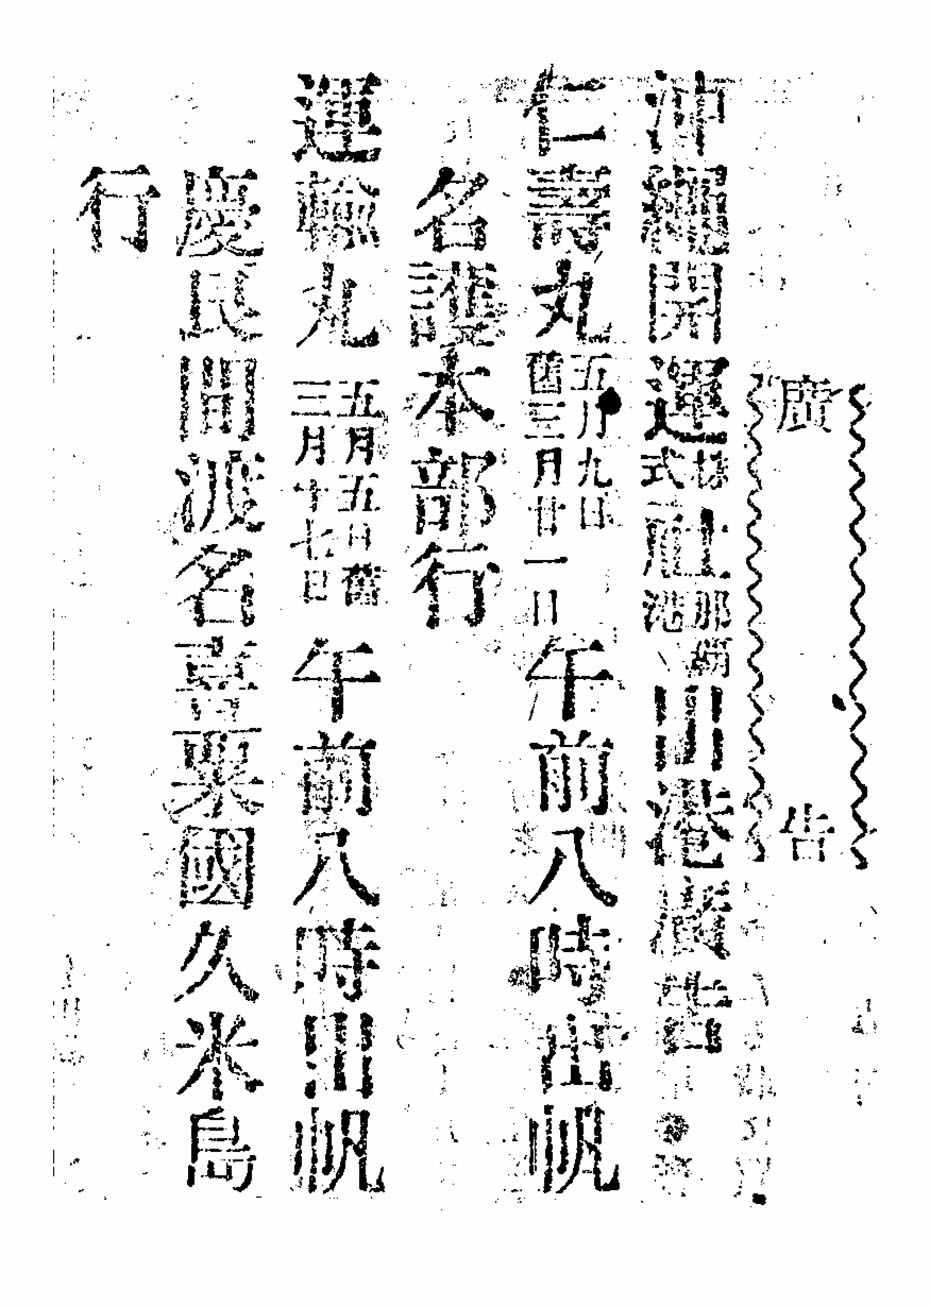 廣告
沖繩開運株式會社那覇港出港廣告
仁壽丸五月九日舊三月廿一日午前八時出帆
名護本部行
運輸丸五月五日舊三月十七日午前八時出帆
慶良間渡名喜粟國久米島
行